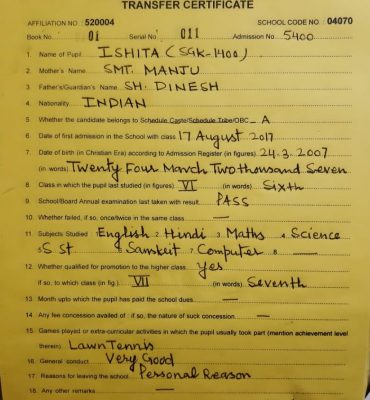 TRANSFER CERTIFICATE
AFFILIATION NO : 520004 SCHOOL CODE NO. : 04070
Book No. 01 Serial No 011 Admission No. 5400
1. Name of Pupil ISHITA (SGK-1400)
2. Mother's Name SMT. MANJU
3. Father's/Guardian's Name SH. DINESH
4. Nationality INDIAN
5. Whether the candidate belongs to Schedule Caste/Schedule Tribe/OBC - A
6. Date of first admission in the School with class 17 August 2017
7. Date of birth (in Christian Era) according to Admission Register (in figures) 24.3.2007
(in words) Twenty Four March Two thousand Seven
8. Class in which the pupil last studied (in figures) VI (in words) Sixth
9. School/Board Annual examination last taken with result PASS
10. Whether failed, if so, once/twice in the same class —
11. Subjects Studied 1 English 2 Hindi 3 Maths 4 Science
5 S st 6 Sanskrit 7 Computer 8 —
12. Whether qualified for promotion to the higher class Yes
if so, to which class (in fig.) VII (in words) Seventh
13. Month upto which the pupil has paid the school dues —
14. Any fee concession availed of : if so, the nature of such concession —
15. Games played or extra-curricular activities in which the pupil usually took part (mention achievement level
therein) Lawn Tennis
16. General conduct Very Good
17. Reasons for leaving the school Personal Reason
18. Any other remarks —